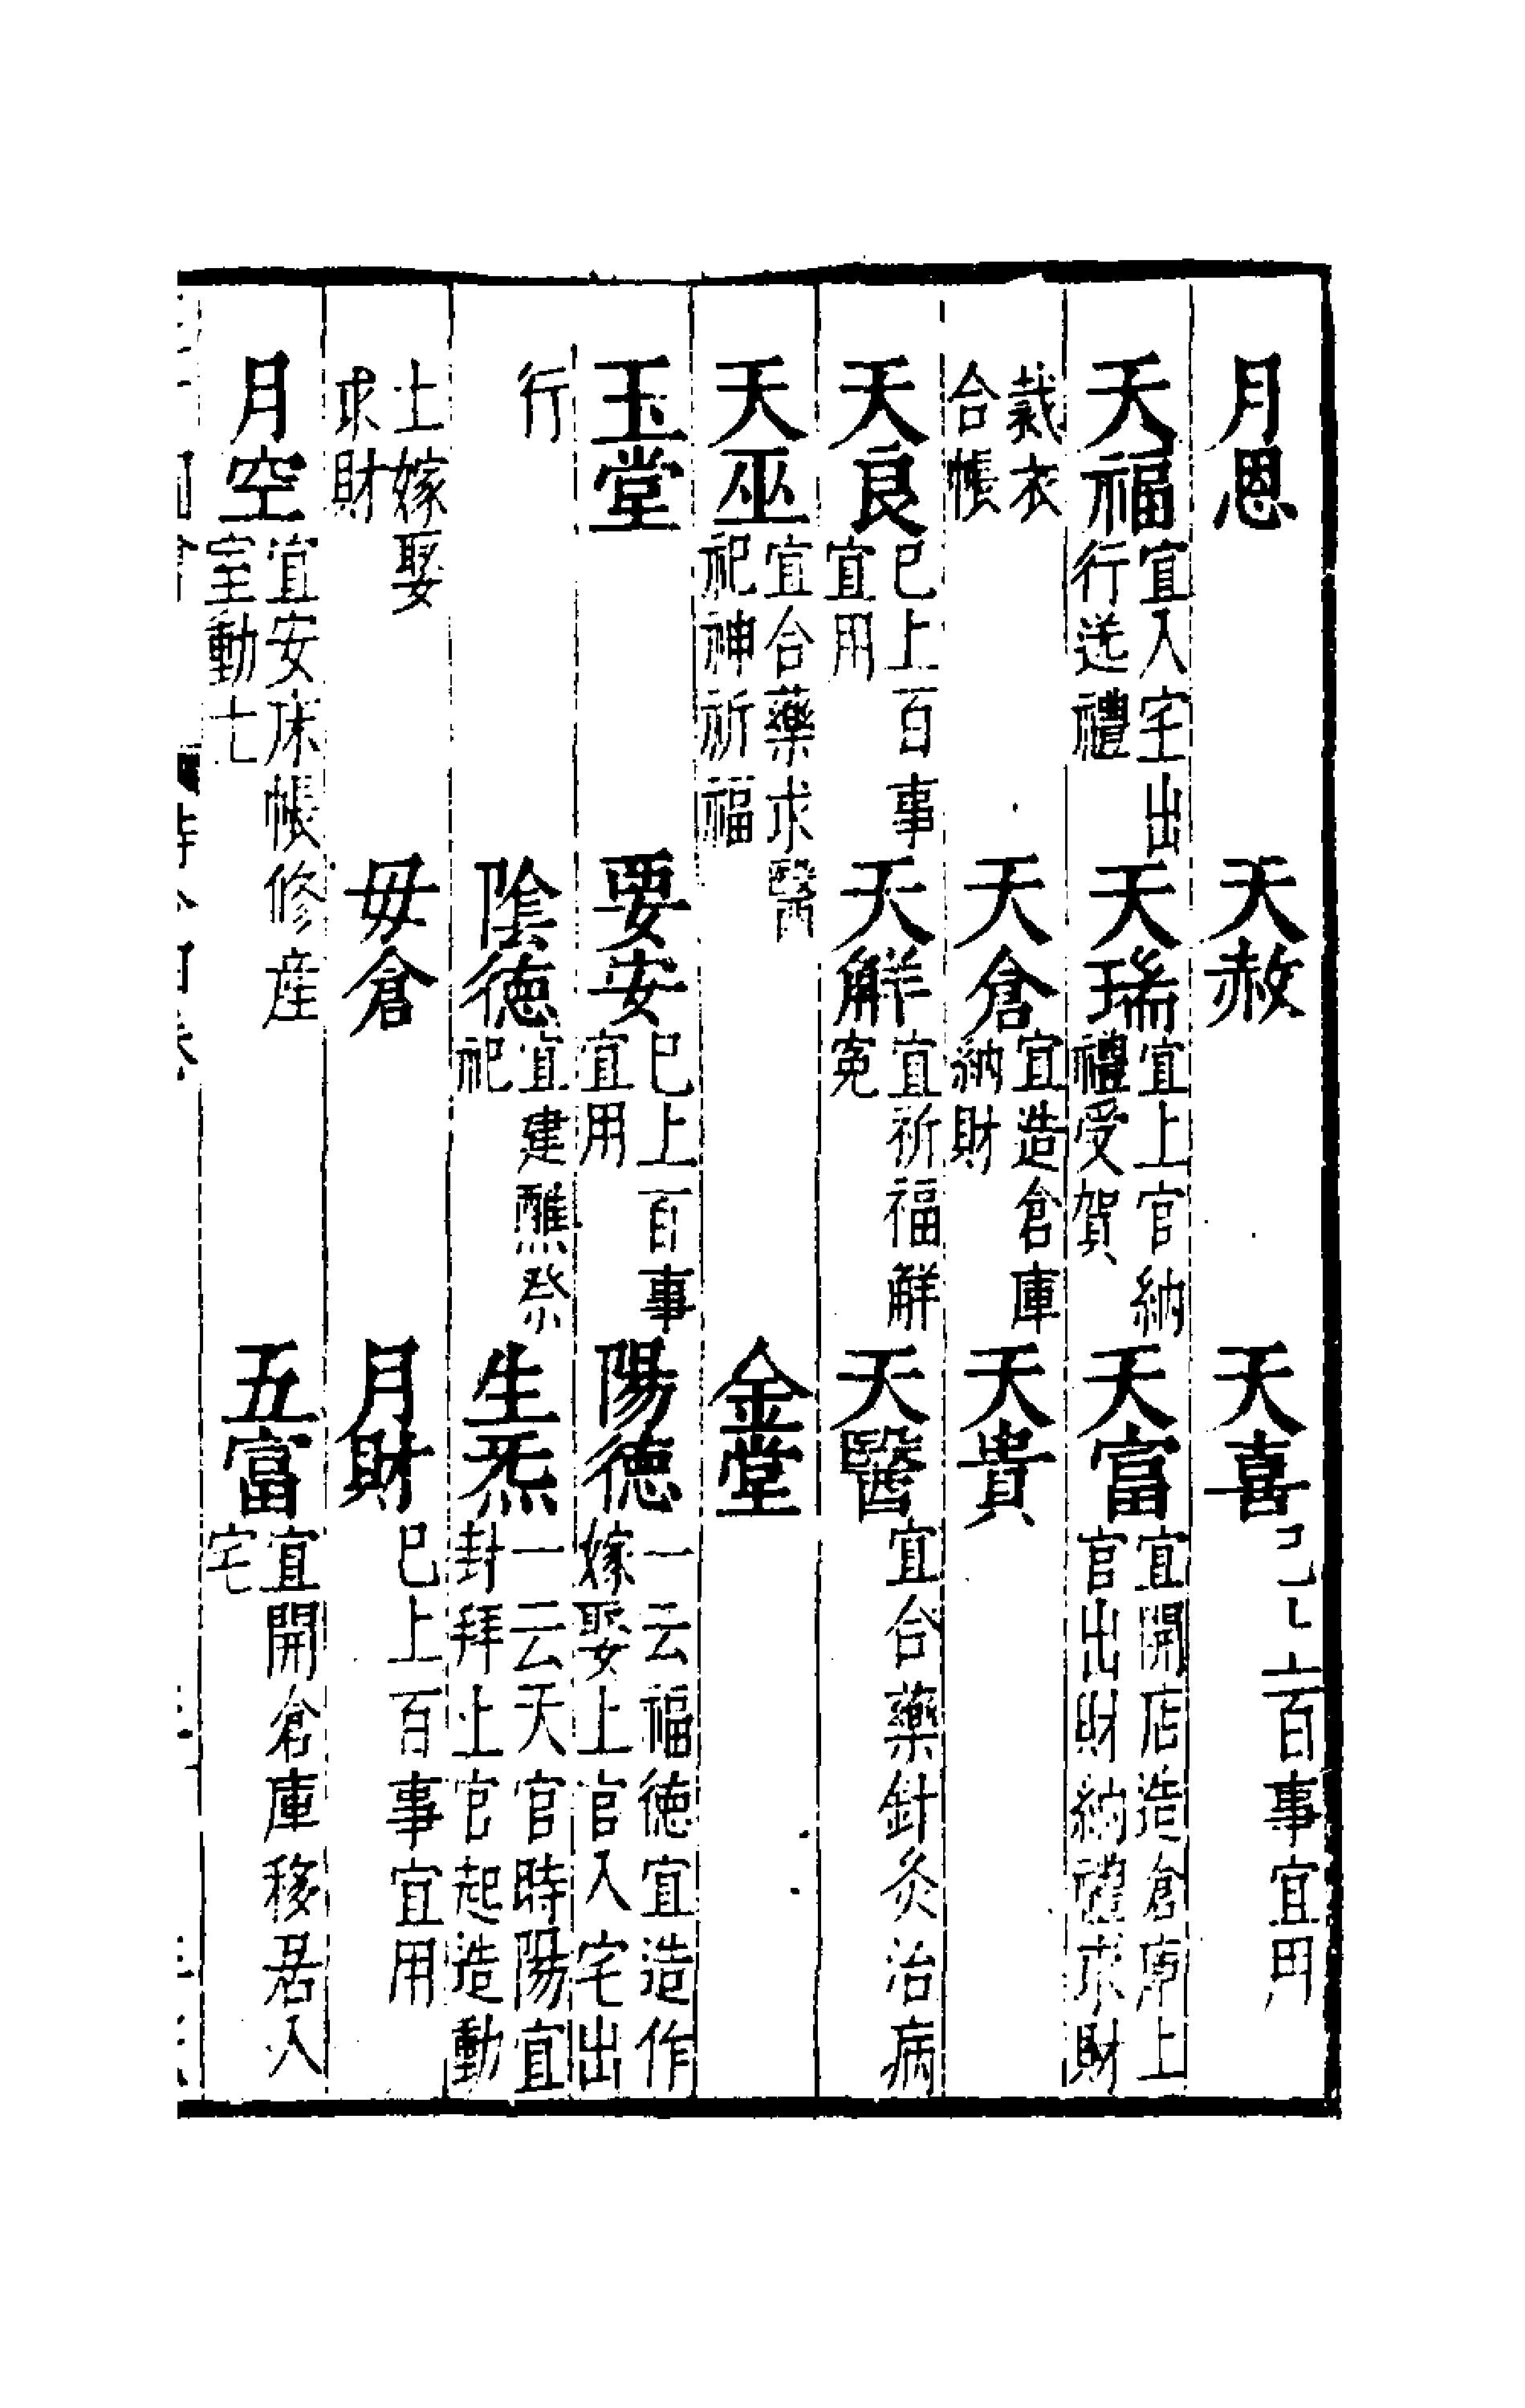 月恩　天赦　天喜已上百事宜用
天福宜入宅出行送禮　天瑞宜上官納禮受賀　天富宜開店造倉庫上官出財納禮求財
裁衣合帳　天倉宜造倉庫納財　天貴
天良已上百事宜用　天觧宜祈福觧寃　天醫宜合藥針灸治病
天巫宜合藥求醫祀神祈福　金堂
玉堂　要安已上百事宜用　陽德一云福德宜造作嫁娶上官入宅出
行　陰德宜建醮祭祀　生炁一云天官時陽宜封拜上官起造動
土嫁娶求財　毋倉　月財已上百事宜用
月空宜安床帳修産室動土　五富宜開倉庫移居入宅